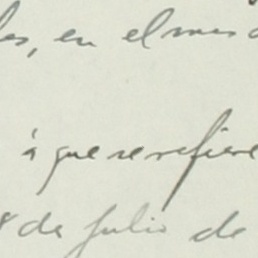 les, en el mes d
á que se refiere
8 de Julio de